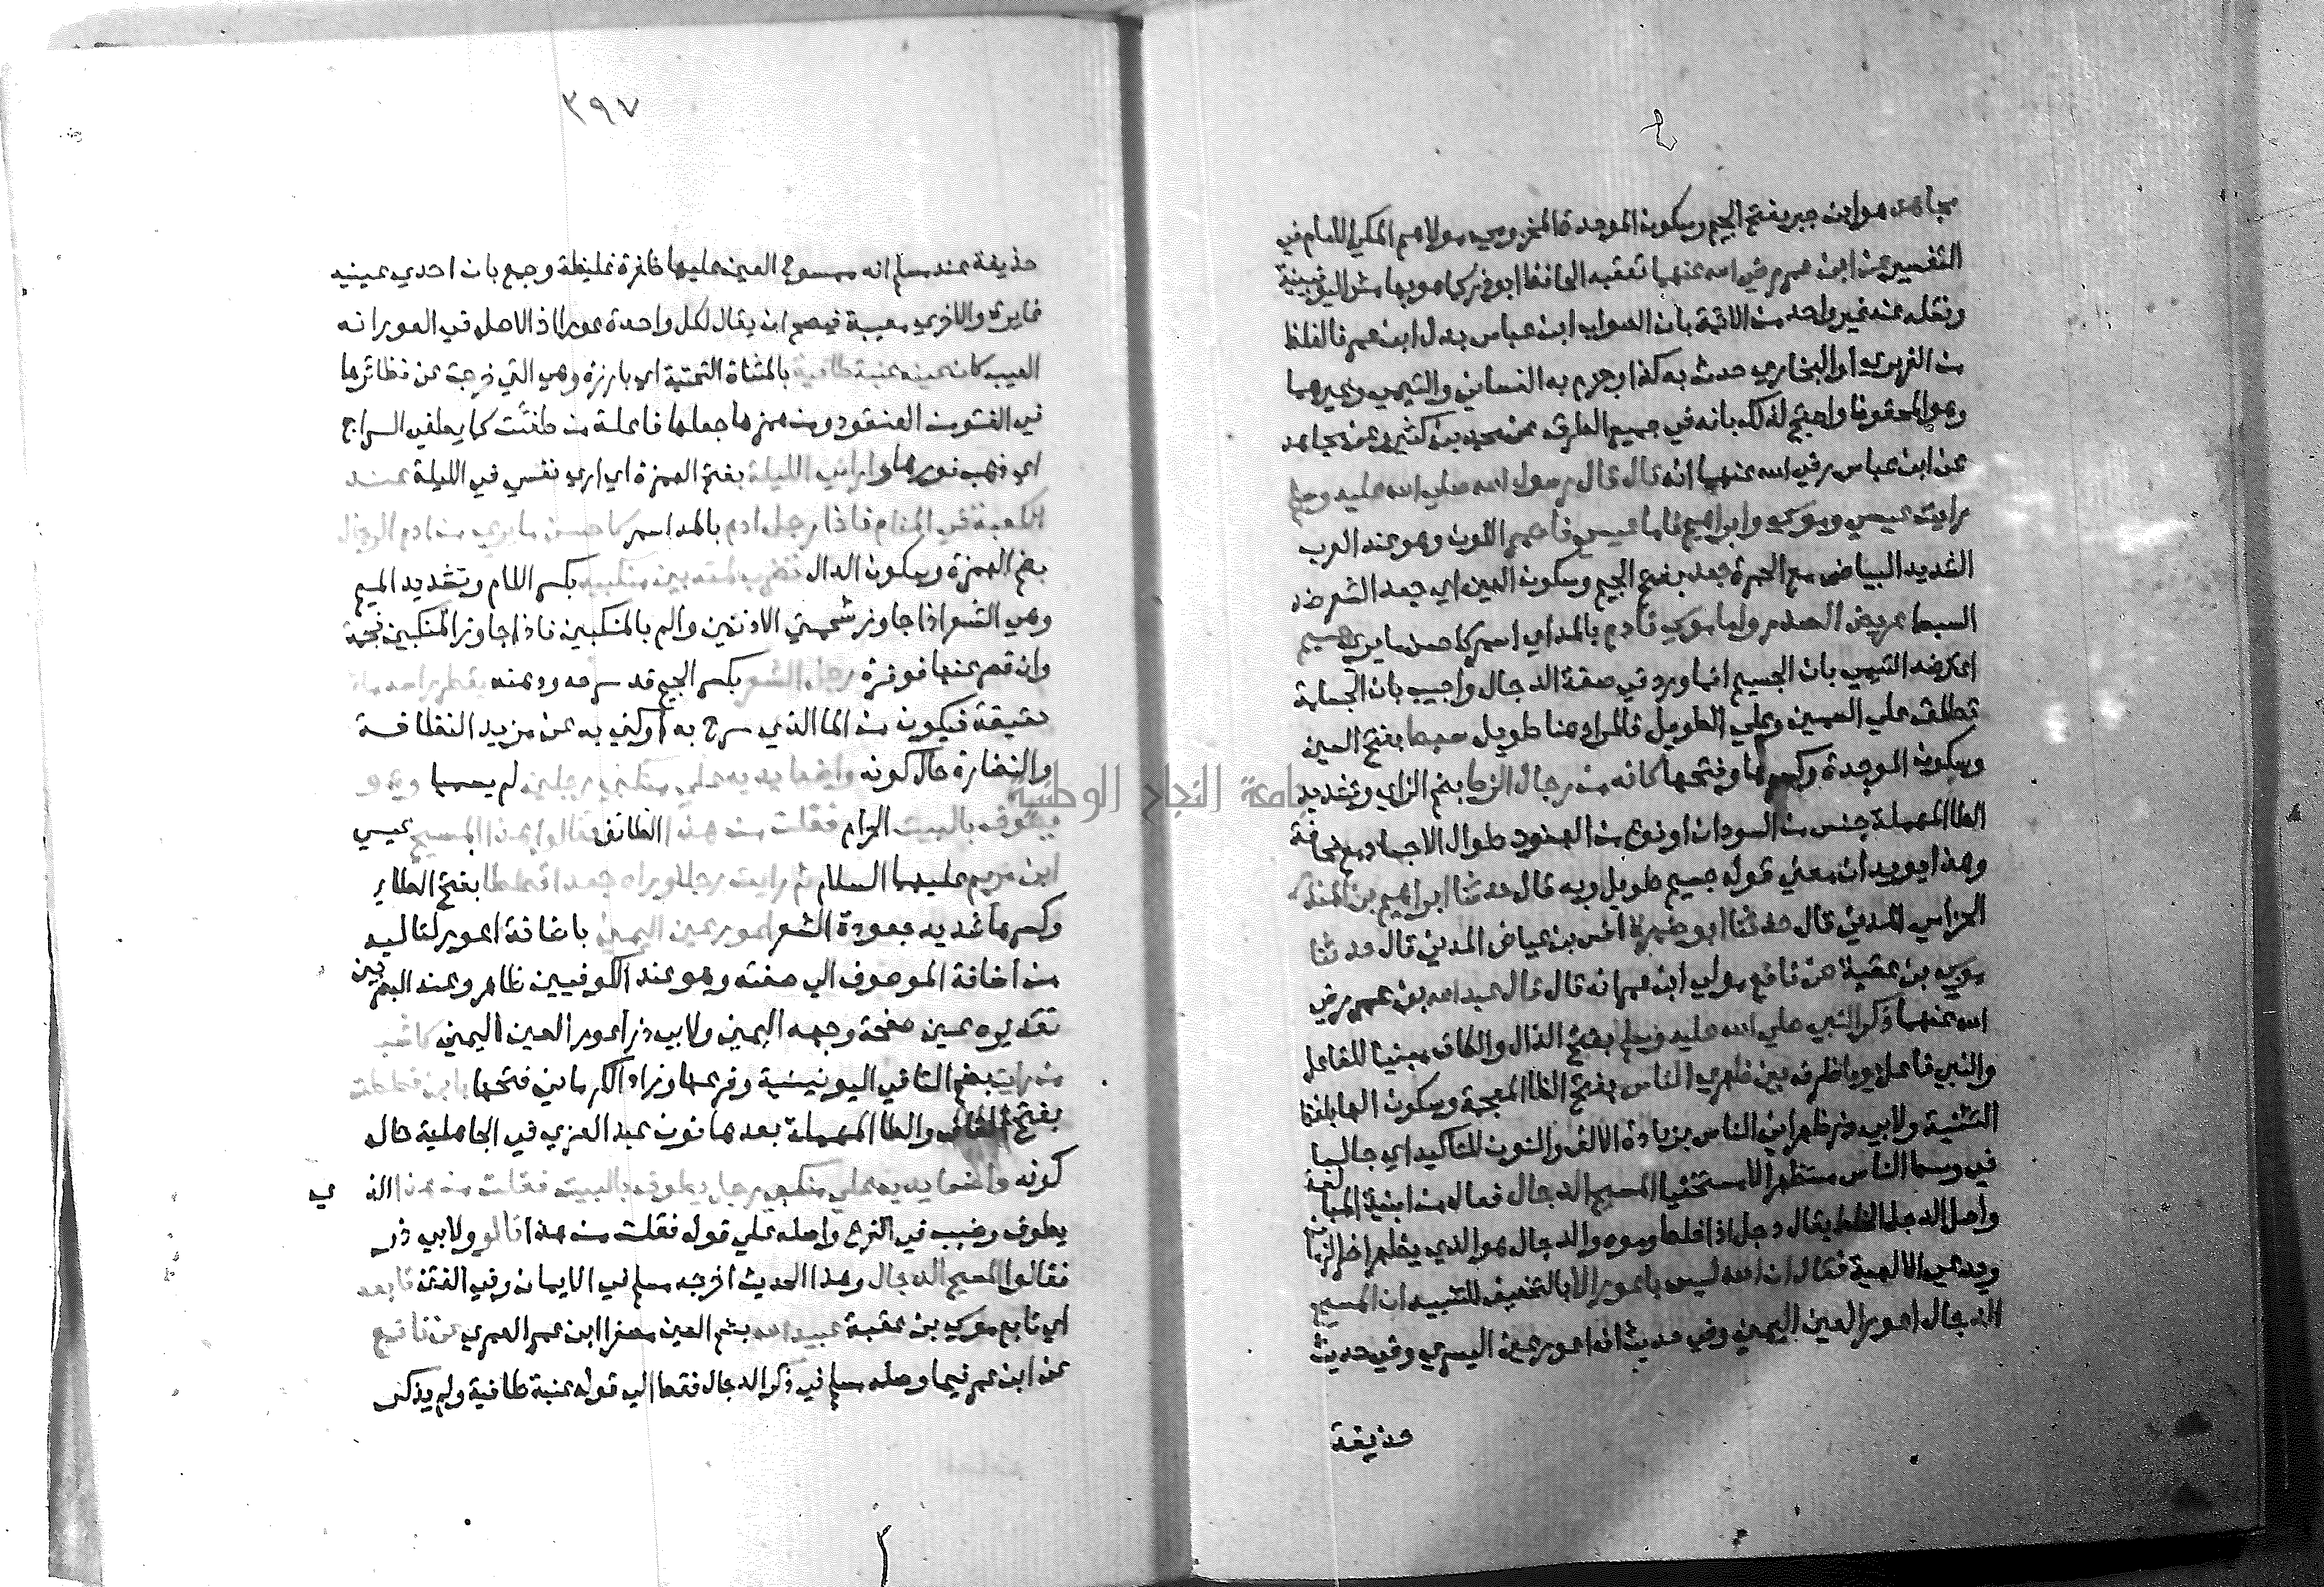 مجاهد هو ابن جبر بفتح الجيم وسكون الموحدة المخزومي مولاهم المكي الامام في
التفسير عن ابن عمر رضي الله عنهما تعقبه الحافظ ابو ذر كما هو بهامش اليونينية
ونقله عنه غير واحد من الائمة بان الصواب ابن عباس بدل ابن عمر فالغلط
من الفربري او البخاري حدث به كذا وجزم به الغساني والتيمي وغيرهما
وهو المحفوظ واحتج لذلك بانه في جميع الطرق عن محمد بن كثير عن مجاهد
عن ابن عباس رضي الله عنهما انه قال قال رسول الله صلي الله عليه وسلم
رايت عيسي وموسي وابراهيم فاما عيسي فاحمر اللون وهو عند العرب
الشديد البياض مع الحمرة جعد بفتح الجيم وسكون العين اي جعد الشعر ضد
السبط عريض الصدر واما موسي فادم بالمد اي اسمر كاحسن ما يري جسيم
اعترضه التيمي بان الجسيم انما ورد في صفة الدجال واجيب بان الجسامة
تطلق علي السمين وعلي الطويل فالمراد هنا طويل سبط بفتح السين
وسكون الموحدة وكسرها وفتحها كانه من رجال الزط بضم الزاي وتشديد
الطا المهملة جنس من السودان او نوع من الهنود طوال الاجساد مع نحافة
وهذا يويد ان معني قوله جسيم طويل وبه قال حدثنا ابراهيم بن المنذر
الحزامي المدني قال حدثنا ابو ضمرة انس بن عياض المدني قال حدثنا
موسي بن عقبة عن نافع مولي ابن عمر انه قال قال عبد الله بن عمر رضي
الله عنهما ذكر النبي صلي الله عليه وسلم بفتح الذال والكاف مبنيا للفاعل
والنبي فاعل يوما ظرف بين ظهري الناس بفتح الظا المعجمة وسكون الها بلفظ
التثنية ولابي ذر ظهراني الناس بزيادة الالف والنون للتاكيد اي جالسا
في وسط الناس مستظهرا لا مستخفيا المسيح الدجال فعال من ابنية المبالغة
واصل الدجل الخلط يقال دجل اذا خلط وموه والدجال هو الذي يظهر اخر الزمان
ويدعي الالهية فقال ان الله ليس باعور الا بالتخفيف للتنبيه ان المسيح
الدجال اعور العين اليمني وفي حديث انه اعور عين اليسري وفي حديث
حذيفة
٣٩٧
حذيفة عند مسلم انه ممسوح العين عليها ظفرة غليظة وجمع بان احدي عينيه
غايرة والاخري معيبة فيصح ان يقال لكل واحدة عورا اذ الاصل في العور انه
العيب كان عينه عنبة طافية بالمثناة التحتية اي بارزة وهي التي خرجت عن نظائرها
في النتو من العنقود ومن همزها جعلها فاعلة من طفئت كما يطفي السراج
اي ذهب نورها واراني الليلة بفتح الهمزة اي اري نفسي في الليلة عند
الكعبة في المنام فاذا رجل ادم بالمد اسمر كاحسن ما يري من ادم الرجال
بضم الهمزة وسكون الدال تضرب لمته بين منكبيه بكسر اللام وتشديد الميم
وهي الشعر اذا جاوز شحمتي الاذنين والم بالمنكبين فاذا جاوز المنكبين فجمة
وان قصر عنها فوفرة رجل الشعر بكسر الجيم قد سرحه ودهنه يقطر راسه ما
حقيقة فيكون من الما الذي سرح به او كني به عن مزيد النظافة
والنضارة حال كونه واضعا يديه علي منكبي رجلين لم يسميا وهو
يطوف بالبيت الحرام فقلت من هذا الطائف فقالوا هذا المسيح عيسي
ابن مريم عليهما السلام ثم رايت رجلا وراه جعدا قططا بفتح الطاء
وكسرها شديد جعودة الشعر اعور عين اليمني باضافة اعور لتاليه
من اضافة الموصوف الي صفته وهو عند الكوفيين ظاهر وعند البصريين
تقديره عين صفحة وجهه اليمني ولابي ذر اعور العين اليمني كاشبه
من رايت بضم التا في اليونينية وفرعها وزاد الكرماني فتحها بابن قطن
بفتح القاف والطا المهملة بعدها نون عبد العزي في الجاهلية حال
كونه واضعا يديه علي منكبي رجل يطوف بالبيت فقلت من هذا الذي
يطوف وضبب في الفرع واصله علي قوله فقلت من هذا قالو ولابي ذر
فقالوا المسيح الدجال وهذا الحديث اخرجه مسلم في الايمان وفي الفتن تابعه
اي تابع موسي بن عقبة عبيد الله بضم العين مصغرا ابن عمر العمري عن نافع
عن ابن عمر فيما وصله مسلم في ذكر الدجال فقط الي قوله عنبة طافية ولم يذكر
جامعة النجاح الوطنية